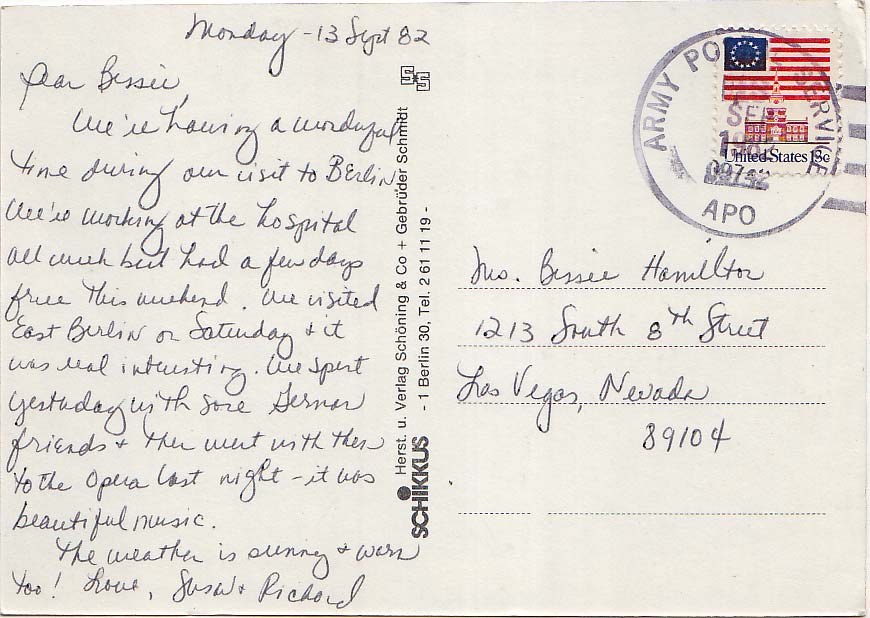 Monday - 13 Sept 82
Dear Bessie,
We're having a wonderful
time during our visit to Berlin
We're working at the hospital
all week but had a few days
free this weekend. We visited
East Berlin on Saturday & it
was real interesting. We spent
yesterday with some German
friends & then went with them
to the Opera last night - it was
beautiful music.
The weather is sunny & warm
too! Love, Susan & Richard
SCHIKKUS
Herst. u. Verlag Schöning & Co + Gebrüder Schmidt
- 1 Berlin 30, Tel. 2 61 11 19 -
S+S
ARMY POSTAL SERVICE
SEP
1982
09742
APO
United States 13c
Mrs. Bessie Hamilton
1213 South 8th Street
Las Vegas, Nevada
89104